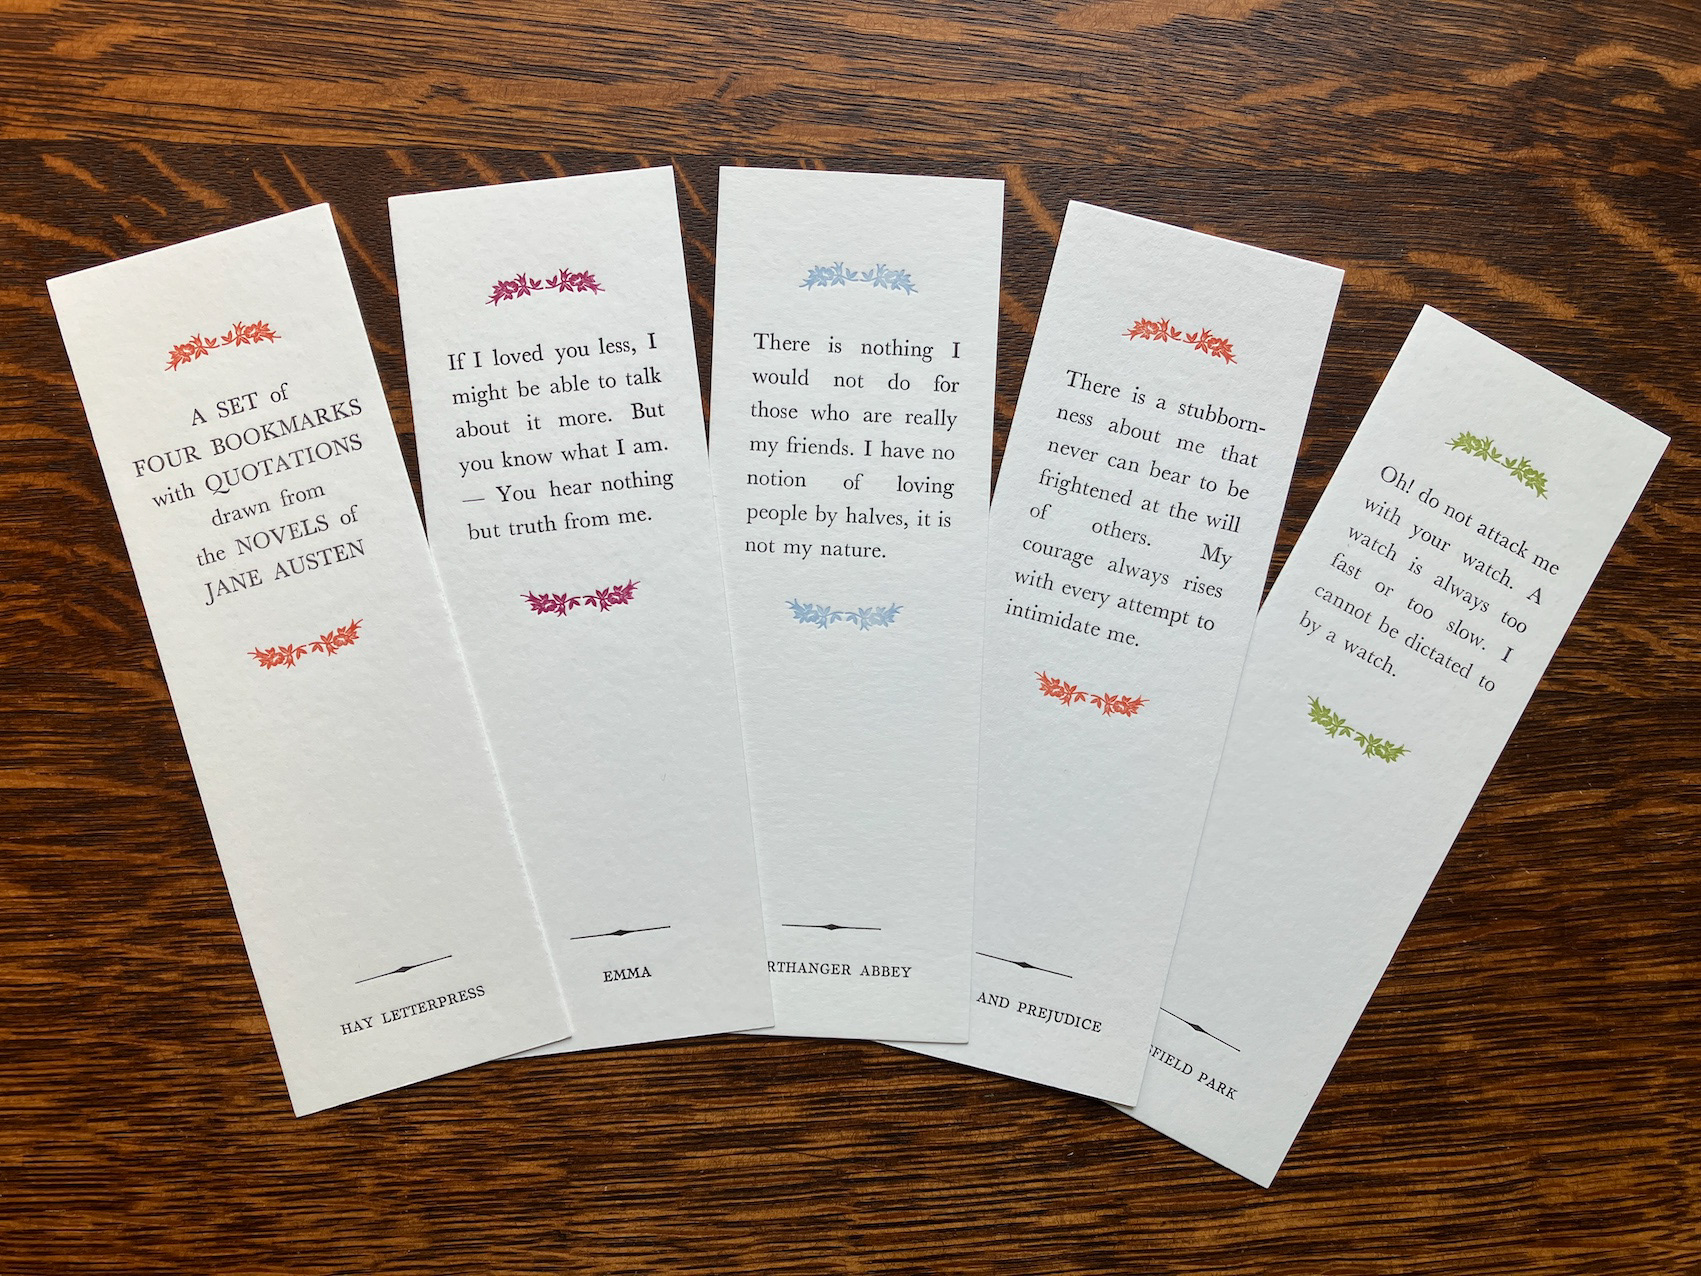 A SET of
FOUR BOOKMARKS
with QUOTATIONS
drawn from
the NOVELS of
JANE AUSTEN
HAY LETTERPRESS
If I loved you less, I
might be able to talk
about it more. But
you know what I am.
— You hear nothing
but truth from me.
EMMA
There is nothing I
would not do for
those who are really
my friends. I have no
notion of loving
people by halves, it is
not my nature.
RTHANGER ABBEY
There is a stubborn-
ness about me that
never can bear to be
frightened at the will
of others. My
courage always rises
with every attempt to
intimidate me.
AND PREJUDICE
Oh! do not attack me
with your watch. A
watch is always too
fast or too slow. I
cannot be dictated to
by a watch.
SFIELD PARK